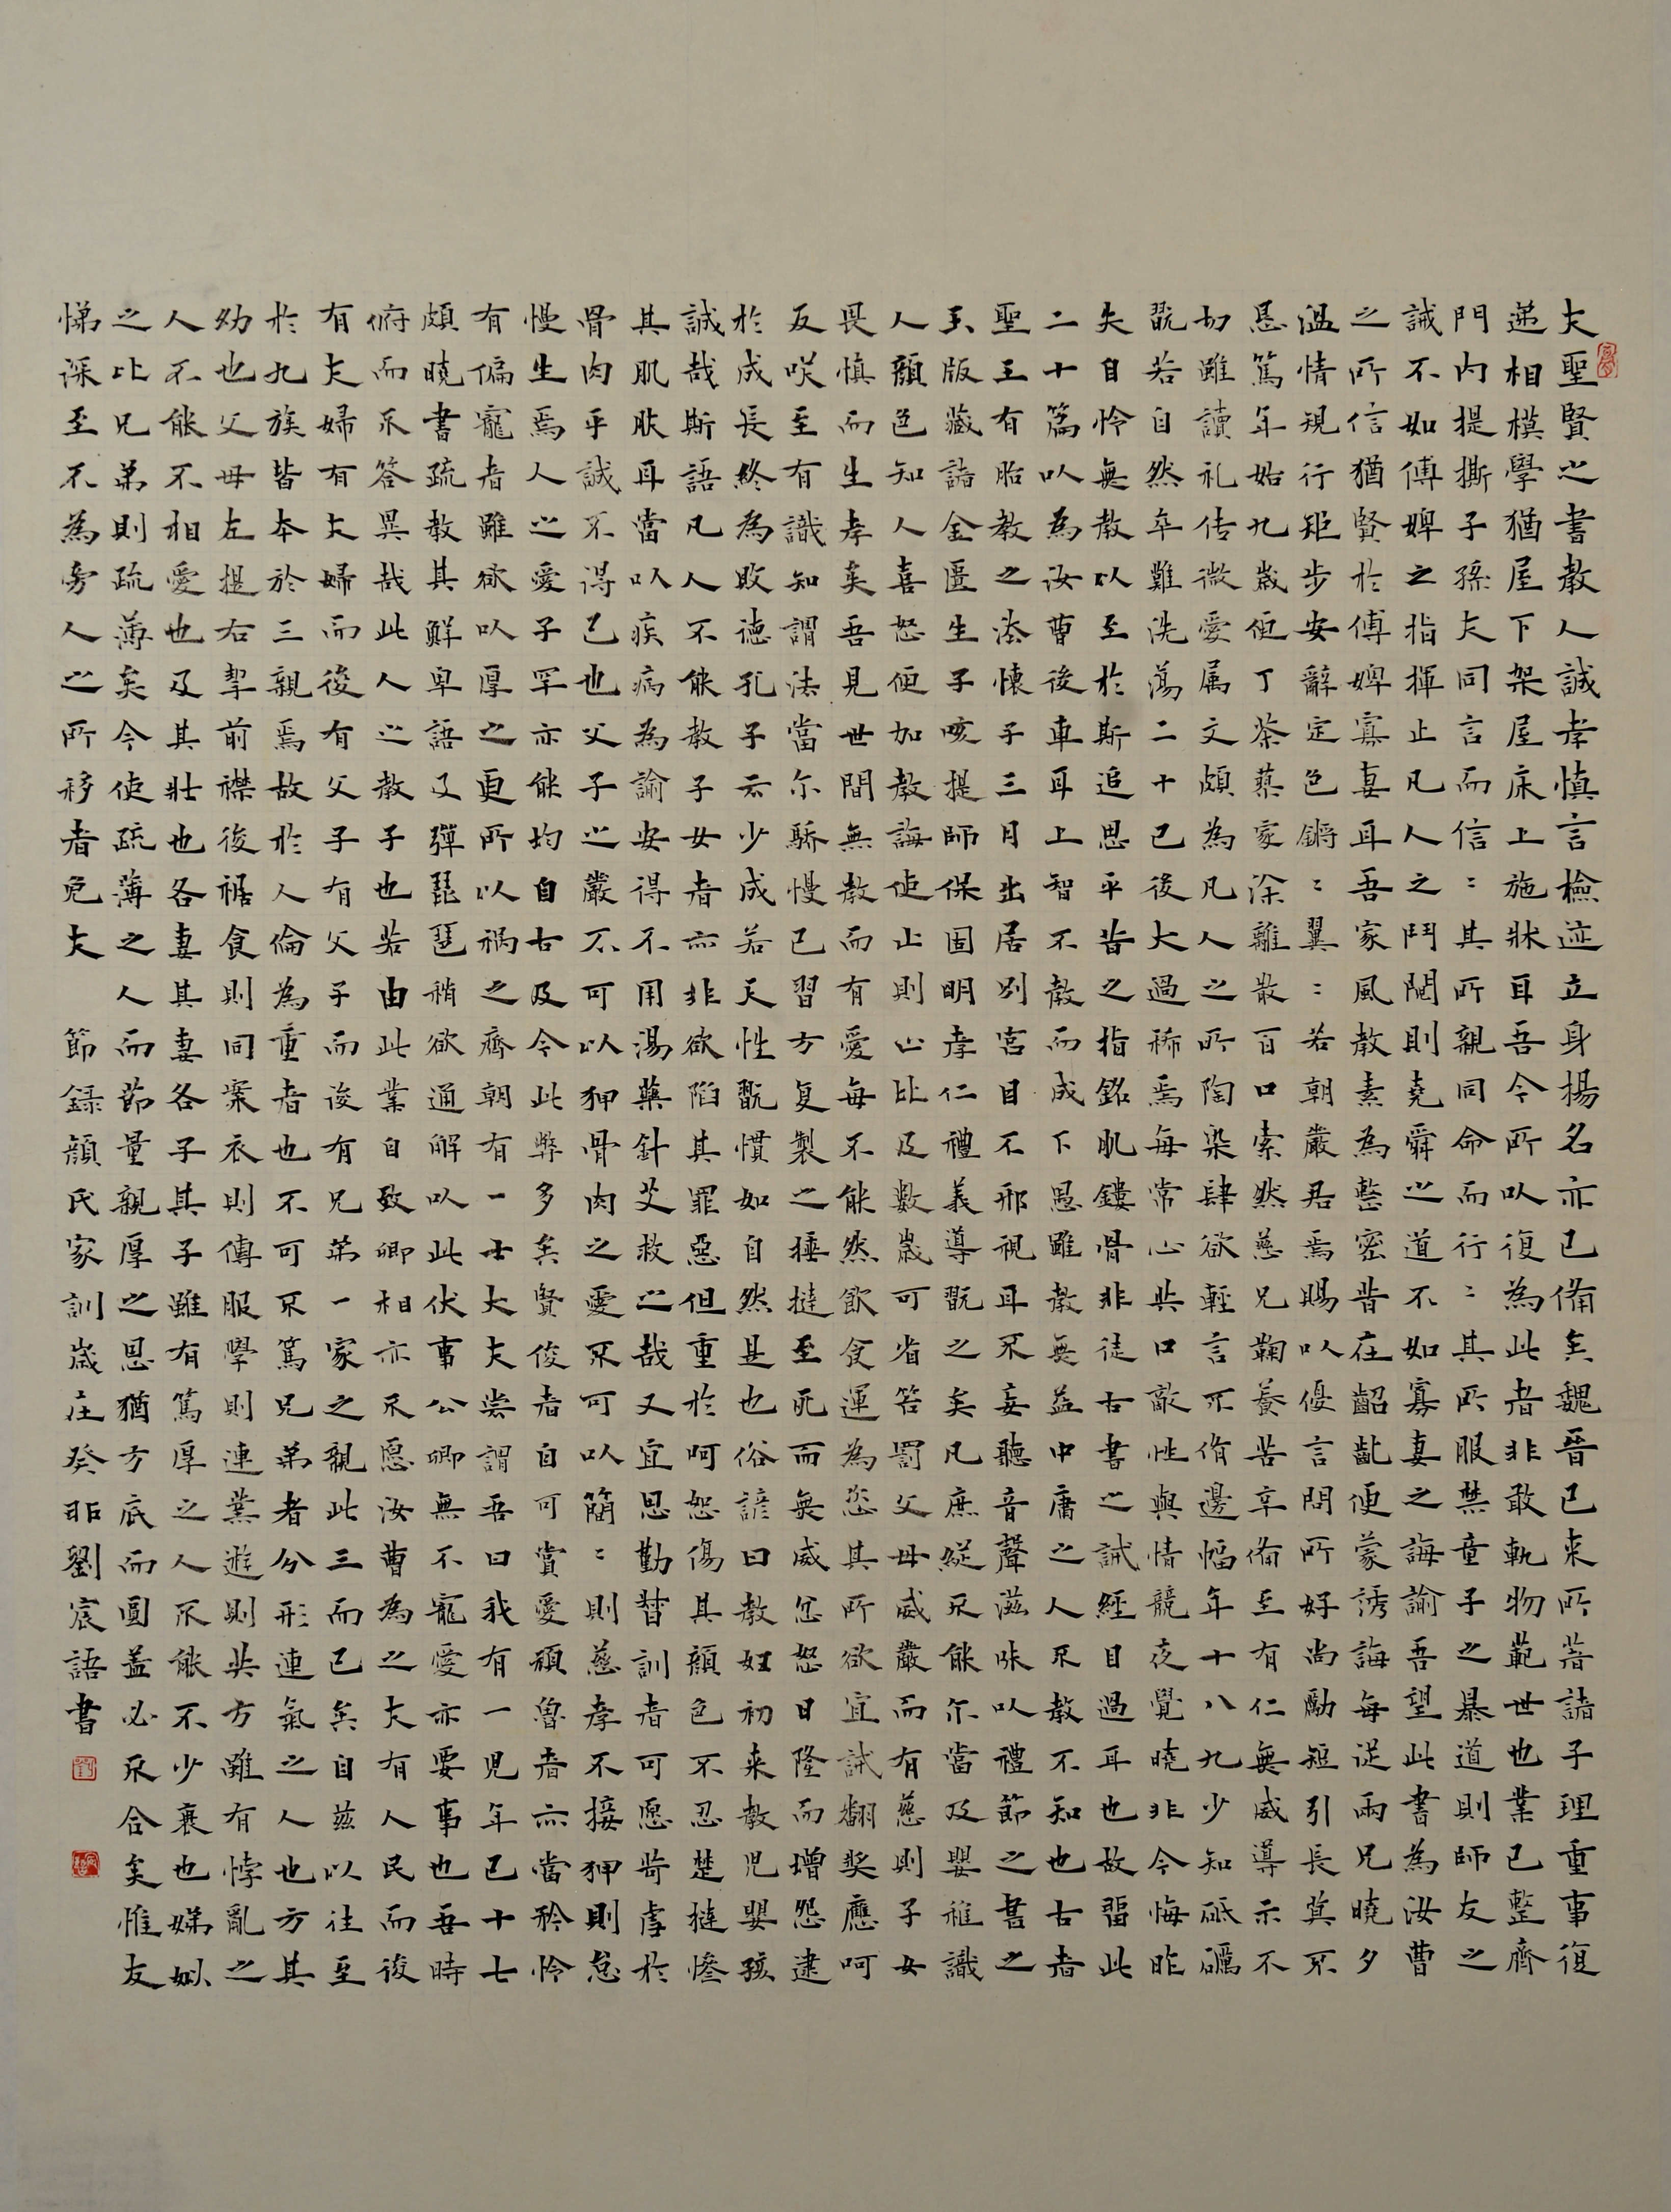 夫聖賢之書教人誠孝慎言檢迹立身揚名亦已備矣魏晉已来所著諸子理重事復
遞相模學猶屋下架屋床上施牀耳吾今所以復為此者非敢軌物範世也業已整齊
門內提撕子孫夫同言而信：其所親同命而行：其所服禁童子之暴道則師友之
誡不如傅婢之指揮止凡人之鬥鬩則堯舜之道不如寡妻之誨諭吾望此書為汝曹
之所信猶賢於傅婢寡妻耳吾家風教素為整密昔在齠齔便蒙誘誨每從兩兄曉夕
溫情規行矩步安辭定色鏘：翼：若朝嚴君焉賜以優言問所好尚勵短引長莫不
恳篤年始九歲便丁荼蓼家塗離散百口索然慈兄鞠養苦辛備至有仁無威導示不
切雖讀礼传微愛属文頗為凡人之所陶染肆欲輕言不脩邊幅年十八九少知砥礪
翫若自然卒難洗蕩二十已後大過稀焉每常心共口敵性與情競夜覺曉非今悔昨
失自怜無教以至於斯追思平昔之指銘肌鏤骨非徒古書之誡經目過耳也故留此
二十篇以為汝曹後車耳上智不教而成下愚雖教無益中庸之人不教不知也古者
聖王有胎教之法懷子三月出居別宮目不邪視耳不妄聽音聲滋味以禮節之書之
玉版藏諸金匱生子咳提師保固明孝仁禮義導翫之矣凡庶縱不能尔當及嬰稚識
人顏色知人喜怒便加教誨使止則止比及數歲可省笞罰父母威嚴而有慈則子女
畏慎而生孝矣吾見世間無教而有愛每不能然飲食運為恣其所欲宜誡翻奬應呵
反咲至有識知謂法當尔驕慢已習方复製之捶撻至死而無威忿怒日隆而增怨逮
於成長終為敗德孔子云少成若天性翫慣如自然是也俗諺曰教婦初来教児嬰孩
誠哉斯語凡人不能教子女者亦非欲陷其罪惡但重於呵恕傷其顏色不忍楚撻慘
其肌膚耳當以疾病為諭安得不用湯藥針艾救之哉又宜思勤督訓者可愿苛虐於
骨肉乎誠不得已也父子之嚴不可以狎骨肉之愛不可以簡：則慈孝不接狎則怠
慢生焉人之愛子罕亦能均自古及今此弊多矣賢俊者自可賞愛頑魯者亦當矜怜
有偏寵者雖欲以厚之更所以禍之齊朝有一士大夫嘗謂吾曰我有一児年已十七
頗曉書疏教其鮮卑語及彈琵琶稍欲通解以此伏事公卿無不寵愛亦要事也吾時
俯而不答異哉此人之教子也若由此業自致卿相亦不愿汝曹為之夫有人民而後
有夫婦有夫婦而後有父子有父子而後有兄弟一家之親此三而已矣自茲以往至
於九族皆本於三親焉故於人倫為重者也不可不篤兄弟者分形連氣之人也方其
幼也父母左提右挈前襟後裾食則同案衣則傳服學則連業遊則共方雖有悖亂之
人不能不相愛也及其壯也各妻其妻各子其子雖有篤厚之人不能不少衰也娣姒
之比兄弟則疏薄矣今使疏薄之人而節量親厚之恩猶方底而圓蓋必不合矣惟友
悌深至不為旁人之所移者免夫 節録顏氏家訓歲在癸巳劉宸語書